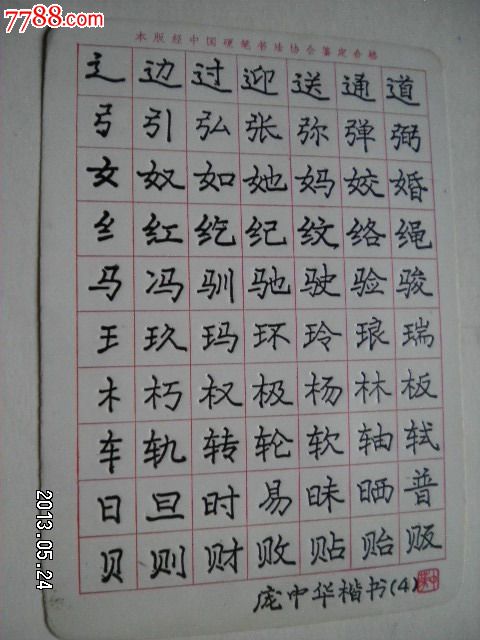 7788.com
本版经中国硬笔书法协会鉴定合格
辶边过迎送通道
弓引弘张弥弹弼
女奴如她妈姣婚
纟红纥纪纹络绳
马冯驯驰驶验骏
王玖玛环玲琅瑞
木朽权极杨林板
车轨转轮软轴轼
日旦时易昧晒普
贝则财败贴贻贩
庞中华楷书(4)
2013.05.24